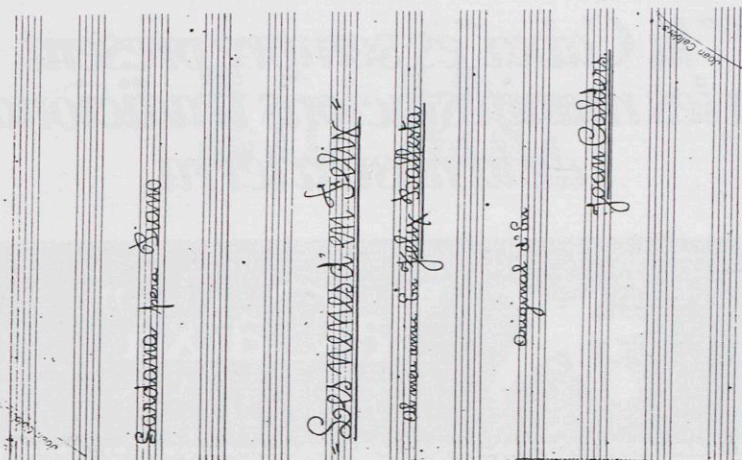 Joan Calders.
Sardana pera Piano
"Les nenes d'en Felix"
Al meu amic En Felix Ballesta
Original d'En
Joan Calders.